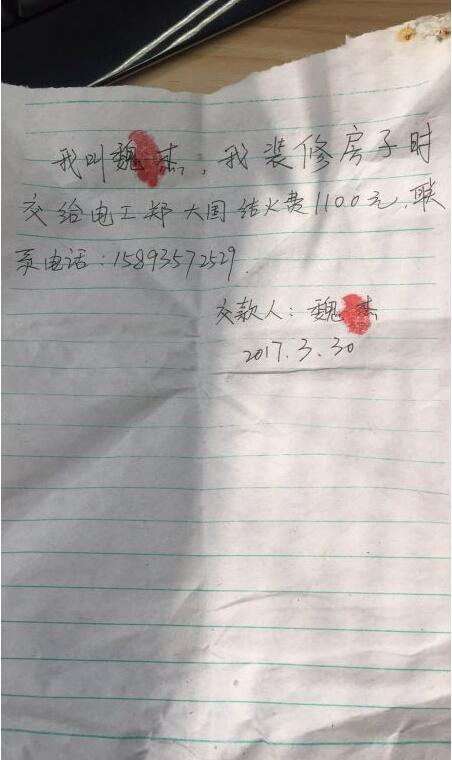 我叫魏杰，我装修房子时
交给电工郑大国结火费1100元，联
系电话：15893572529.
交款人：魏杰
2017.3.30